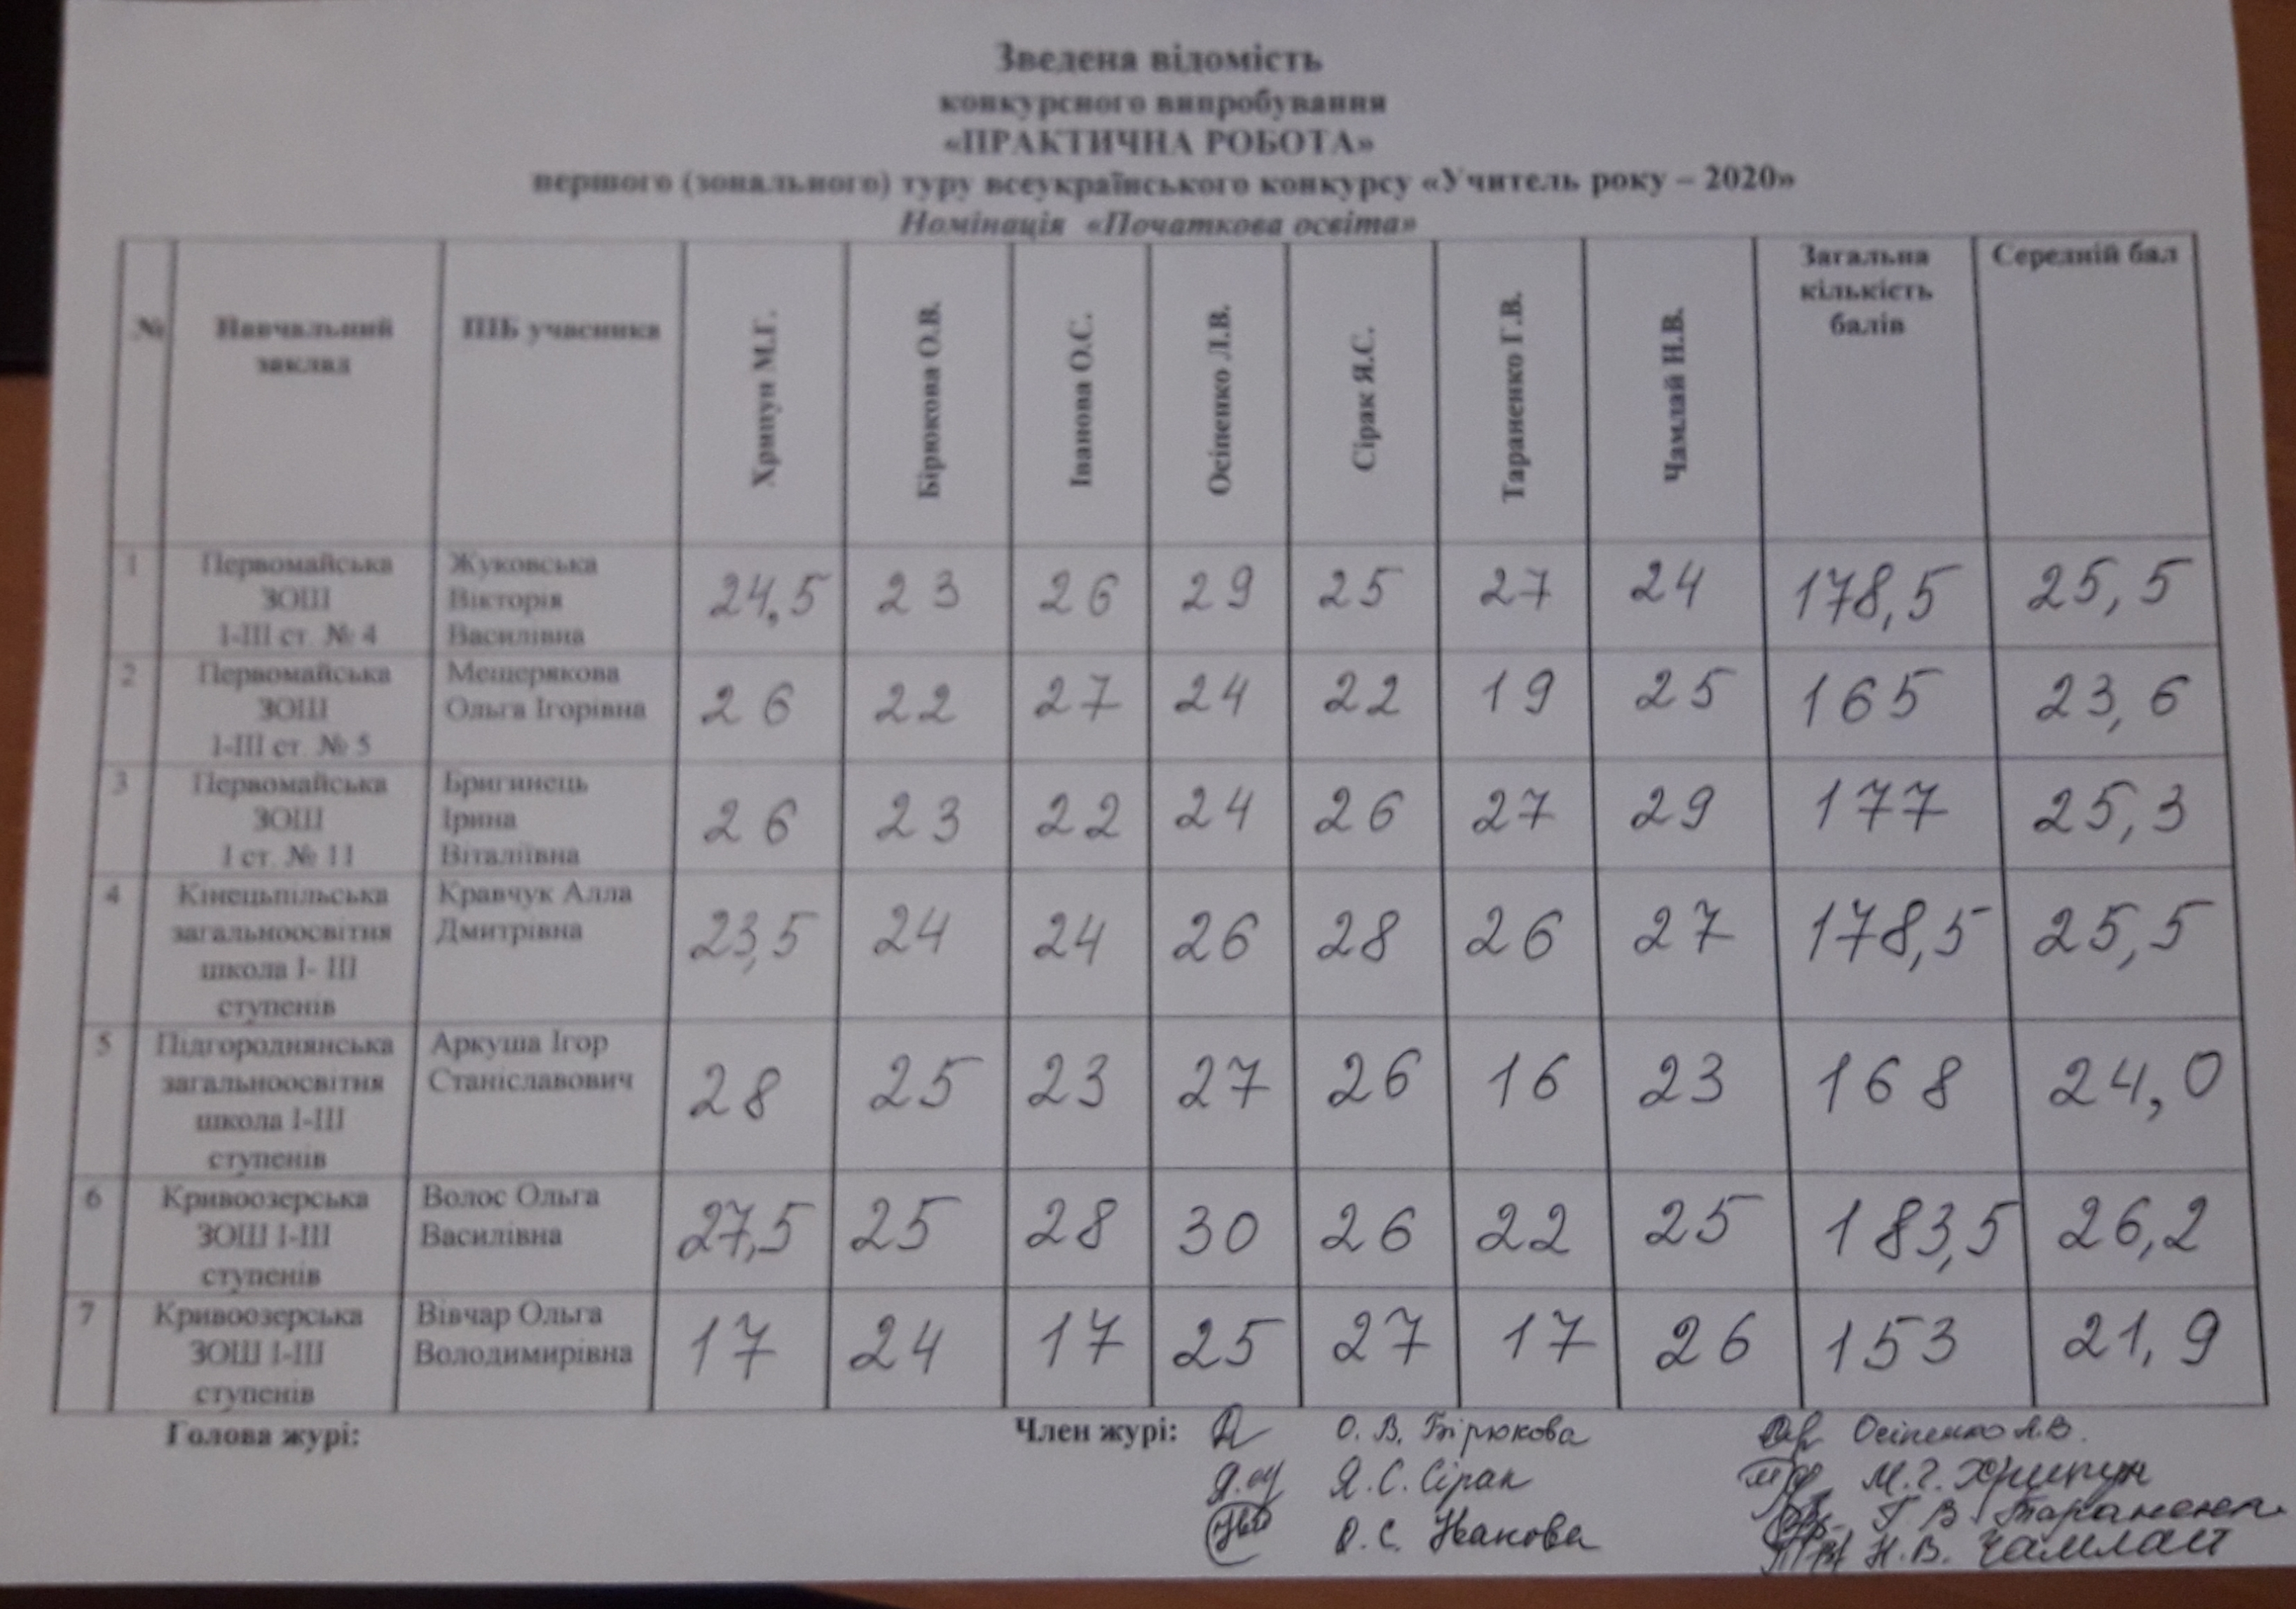 Зведена відомість
конкурсного випробування
«ПРАКТИЧНА РОБОТА»
першого (зонального) туру всеукраїнського конкурсу «Учитель року – 2020»
Номінація «Початкова освіта»
№ Навчальний заклад ПІБ учасника Хрипун М.Г. Бірюкова О.В. Іванова О.С. Осіпенко Л.В. Сірак Я.С. Тараненко Г.В. Чамлай Н.В. Загальна кількість балів Середній бал
1 Первомайська ЗОШ І-ІІІ ст. № 4 Жуковська Вікторія Василівна 24,5 23 26 29 25 27 24 178,5 25,5
2 Первомайська ЗОШ І-ІІІ ст. № 5 Мещерякова Ольга Ігорівна 26 22 27 24 22 19 25 165 23,6
3 Первомайська ЗОШ І ст. № 11 Бригинець Ірина Віталіївна 26 23 22 24 26 27 29 177 25,3
4 Кінецьпільська загальноосвітня школа І- ІІІ ступенів Кравчук Алла Дмитрівна 23,5 24 24 26 28 26 27 178,5 25,5
5 Підгороднянська загальноосвітня школа І-ІІІ ступенів Аркуша Ігор Станіславович 28 25 23 27 26 16 23 168 24,0
6 Кривоозерська ЗОШ І-ІІІ ступенів Волос Ольга Василівна 27,5 25 28 30 26 22 25 183,5 26,2
7 Кривоозерська ЗОШ І-ІІІ ступенів Вівчар Ольга Володимирівна 17 24 17 25 27 17 26 153 21,9
Голова журі: Член журі: О. В. Бірюкова Осіпенко Л.В.
Я. С. Сірак М.Г. Хрипун
О. С. Іванова Г В Тараненко
Н.В. Чамлай